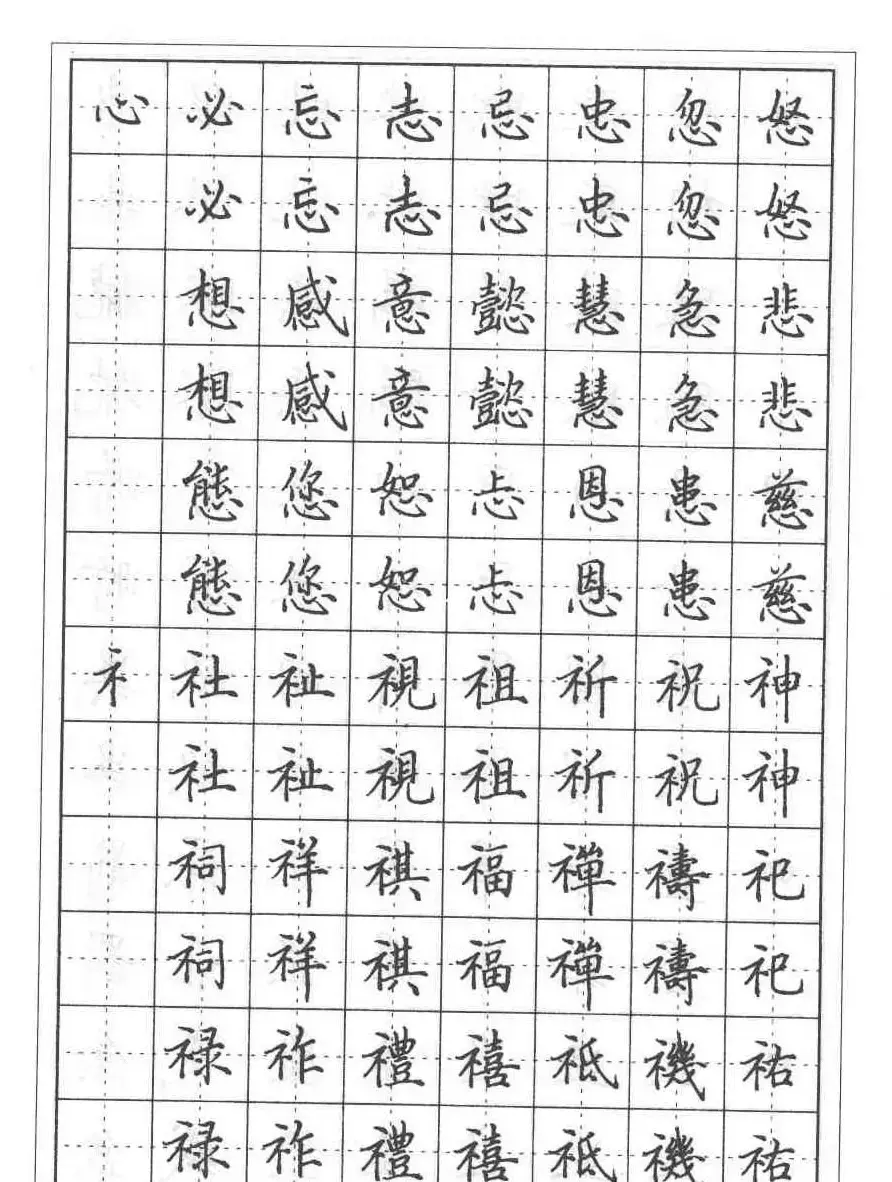 心必忘志忌忠忽怒
必忘志忌忠忽怒
想感意懿慧急悲
想感意懿慧急悲
態您恕忐恩患慈
態您恕忐恩患慈
礻社祉視祖祈祝神
社祉視祖祈祝神
祠祥祺福禪禱祀
祠祥祺福禪禱祀
禄祚禮禧祗禨祐
禄祚禮禧祗禨祐